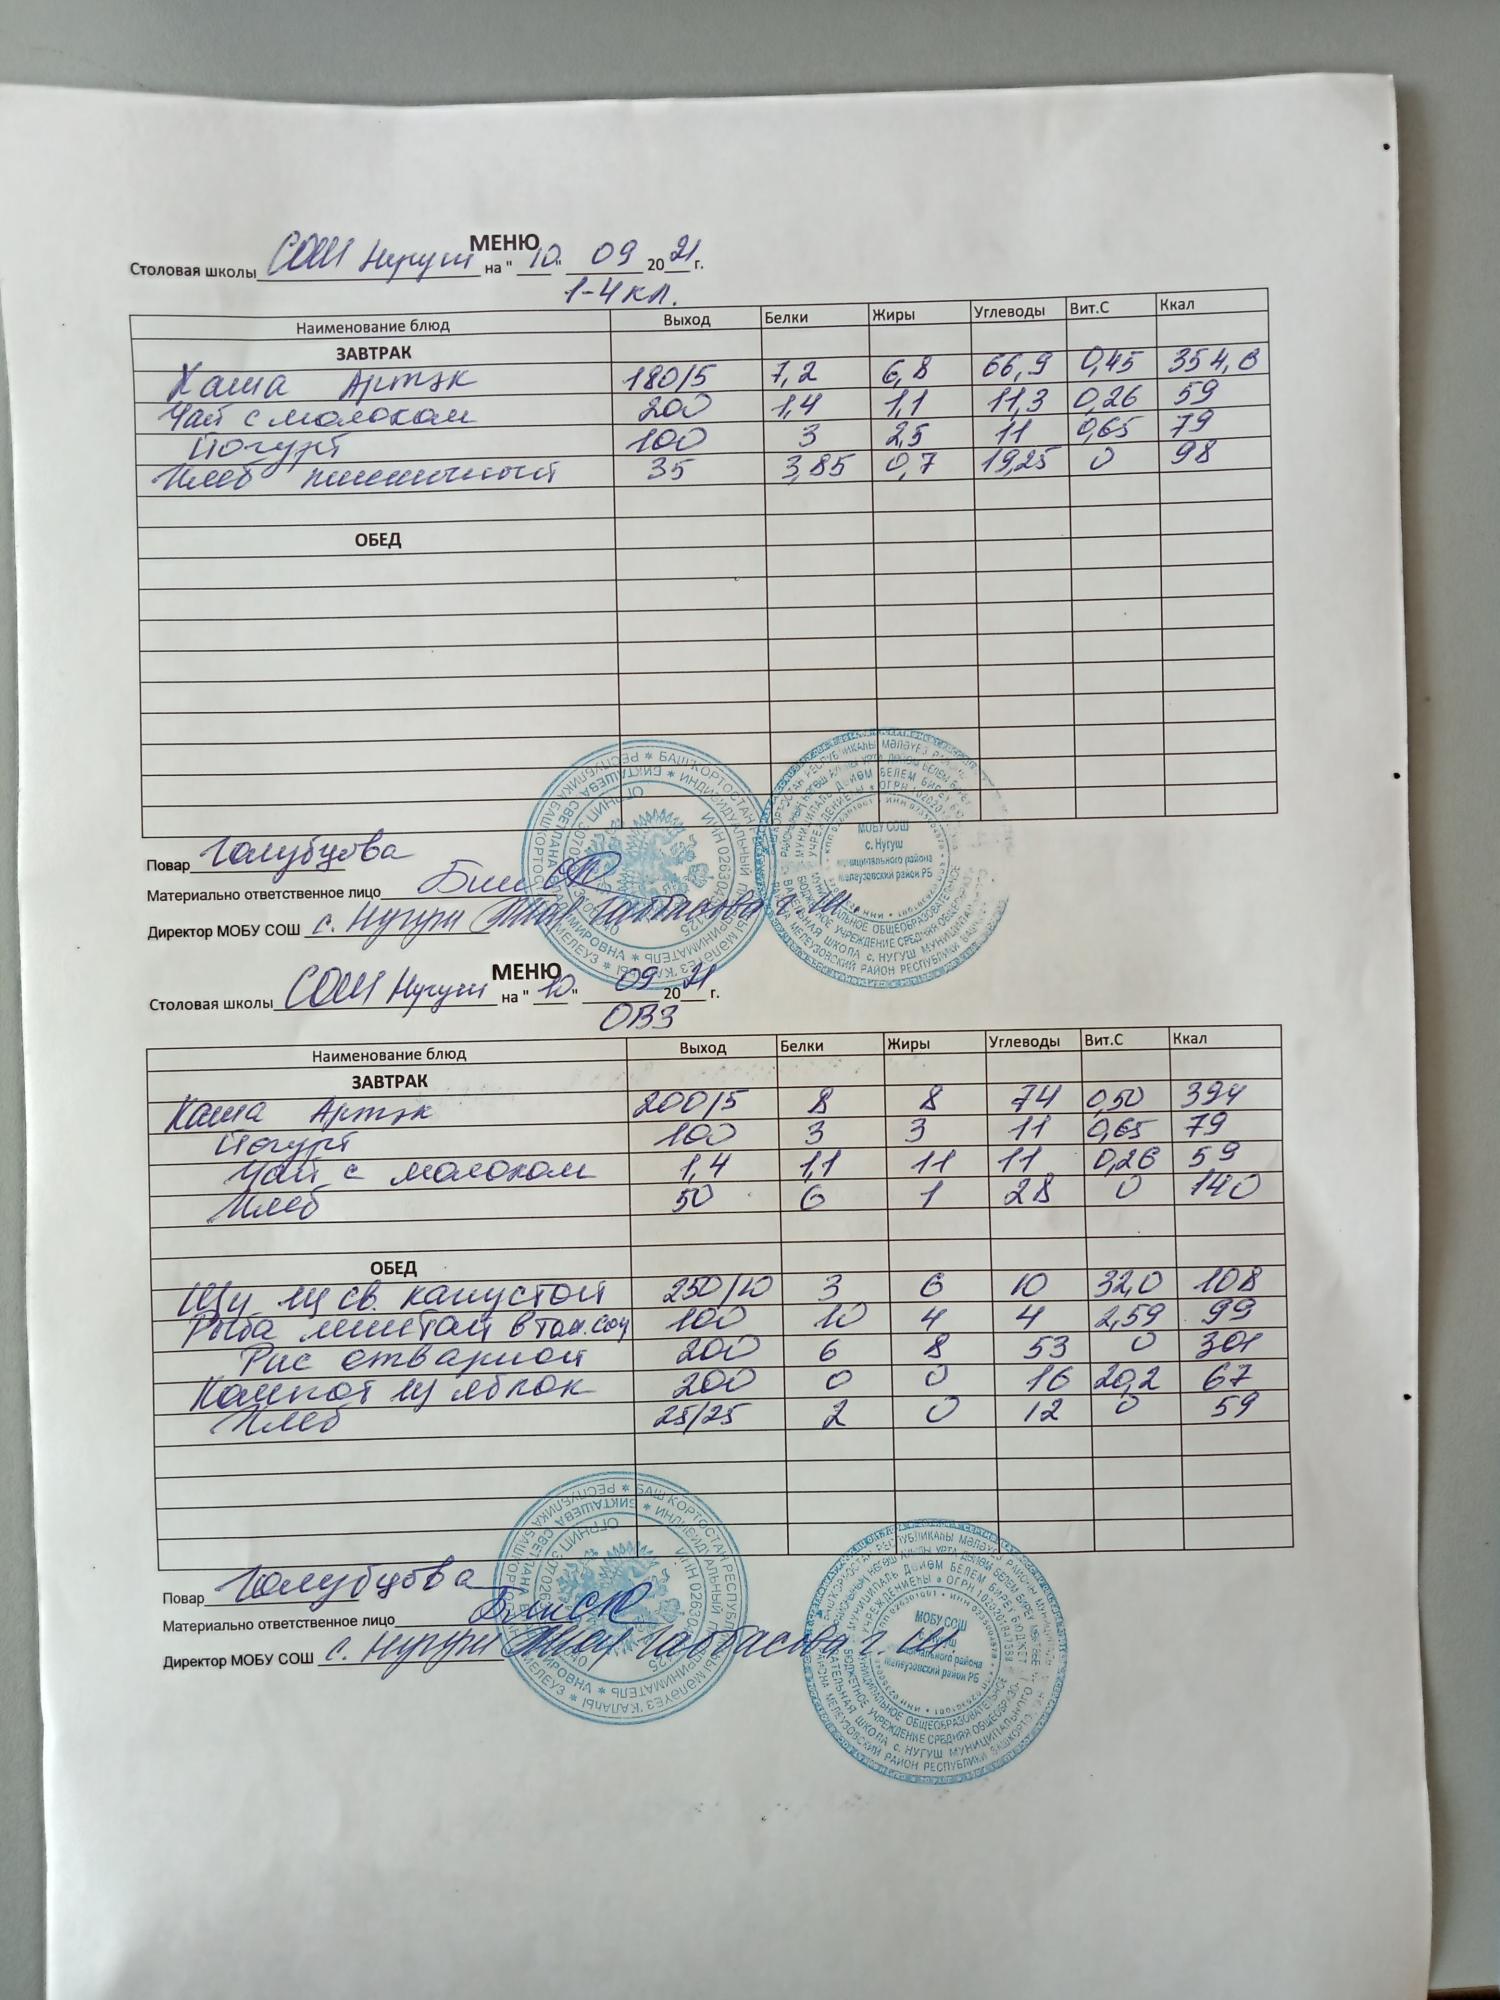 МЕНЮ
Столовая школы СОШ Нугуш на " 10 " 09 2021 г.
1-4 кл.
Наименование блюд Выход Белки Жиры Углеводы Вит.С Ккал
ЗАВТРАК
Каша Артэк 180/5 7,2 6,8 66,9 0,45 354,6
Чай с молоком 200 1,4 1,1 11,3 0,26 59
Йогурт 100 3 2,5 11 0,65 79
Хлеб пшеничный 35 3,85 0,7 19,25 0 98
ОБЕД
Повар Голубцова
Материально ответственное лицо
Директор МОБУ СОШ с. Нугуш
МОБУ СОШ
с. Нугуш
муниципального района
Мелеузовский район РБ
МЕНЮ
Столовая школы СОШ Нугуш на " 10 " 09 2021 г.
ОВЗ
Наименование блюд Выход Белки Жиры Углеводы Вит.С Ккал
ЗАВТРАК
Каша Артэк 200/5 8 8 74 0,50 394
Йогурт 100 3 3 11 0,65 79
Чай с молоком 1,4 1,1 11 11 0,26 59
Хлеб 50 6 1 28 0 140
ОБЕД
Щи из св. капустой 250/10 3 6 10 32,0 108
Рыба минтай в том. соу 100 10 4 4 2,59 99
Рис отварной 200 6 8 53 0 301
Компот из яблок 200 0 0 16 20,2 67
Хлеб 25/25 2 0 12 0 59
Повар Голубцова
Материально ответственное лицо
Директор МОБУ СОШ с. Нугуш
МОБУ СОШ
с. Нугуш
муниципального района
Мелеузовский район РБ